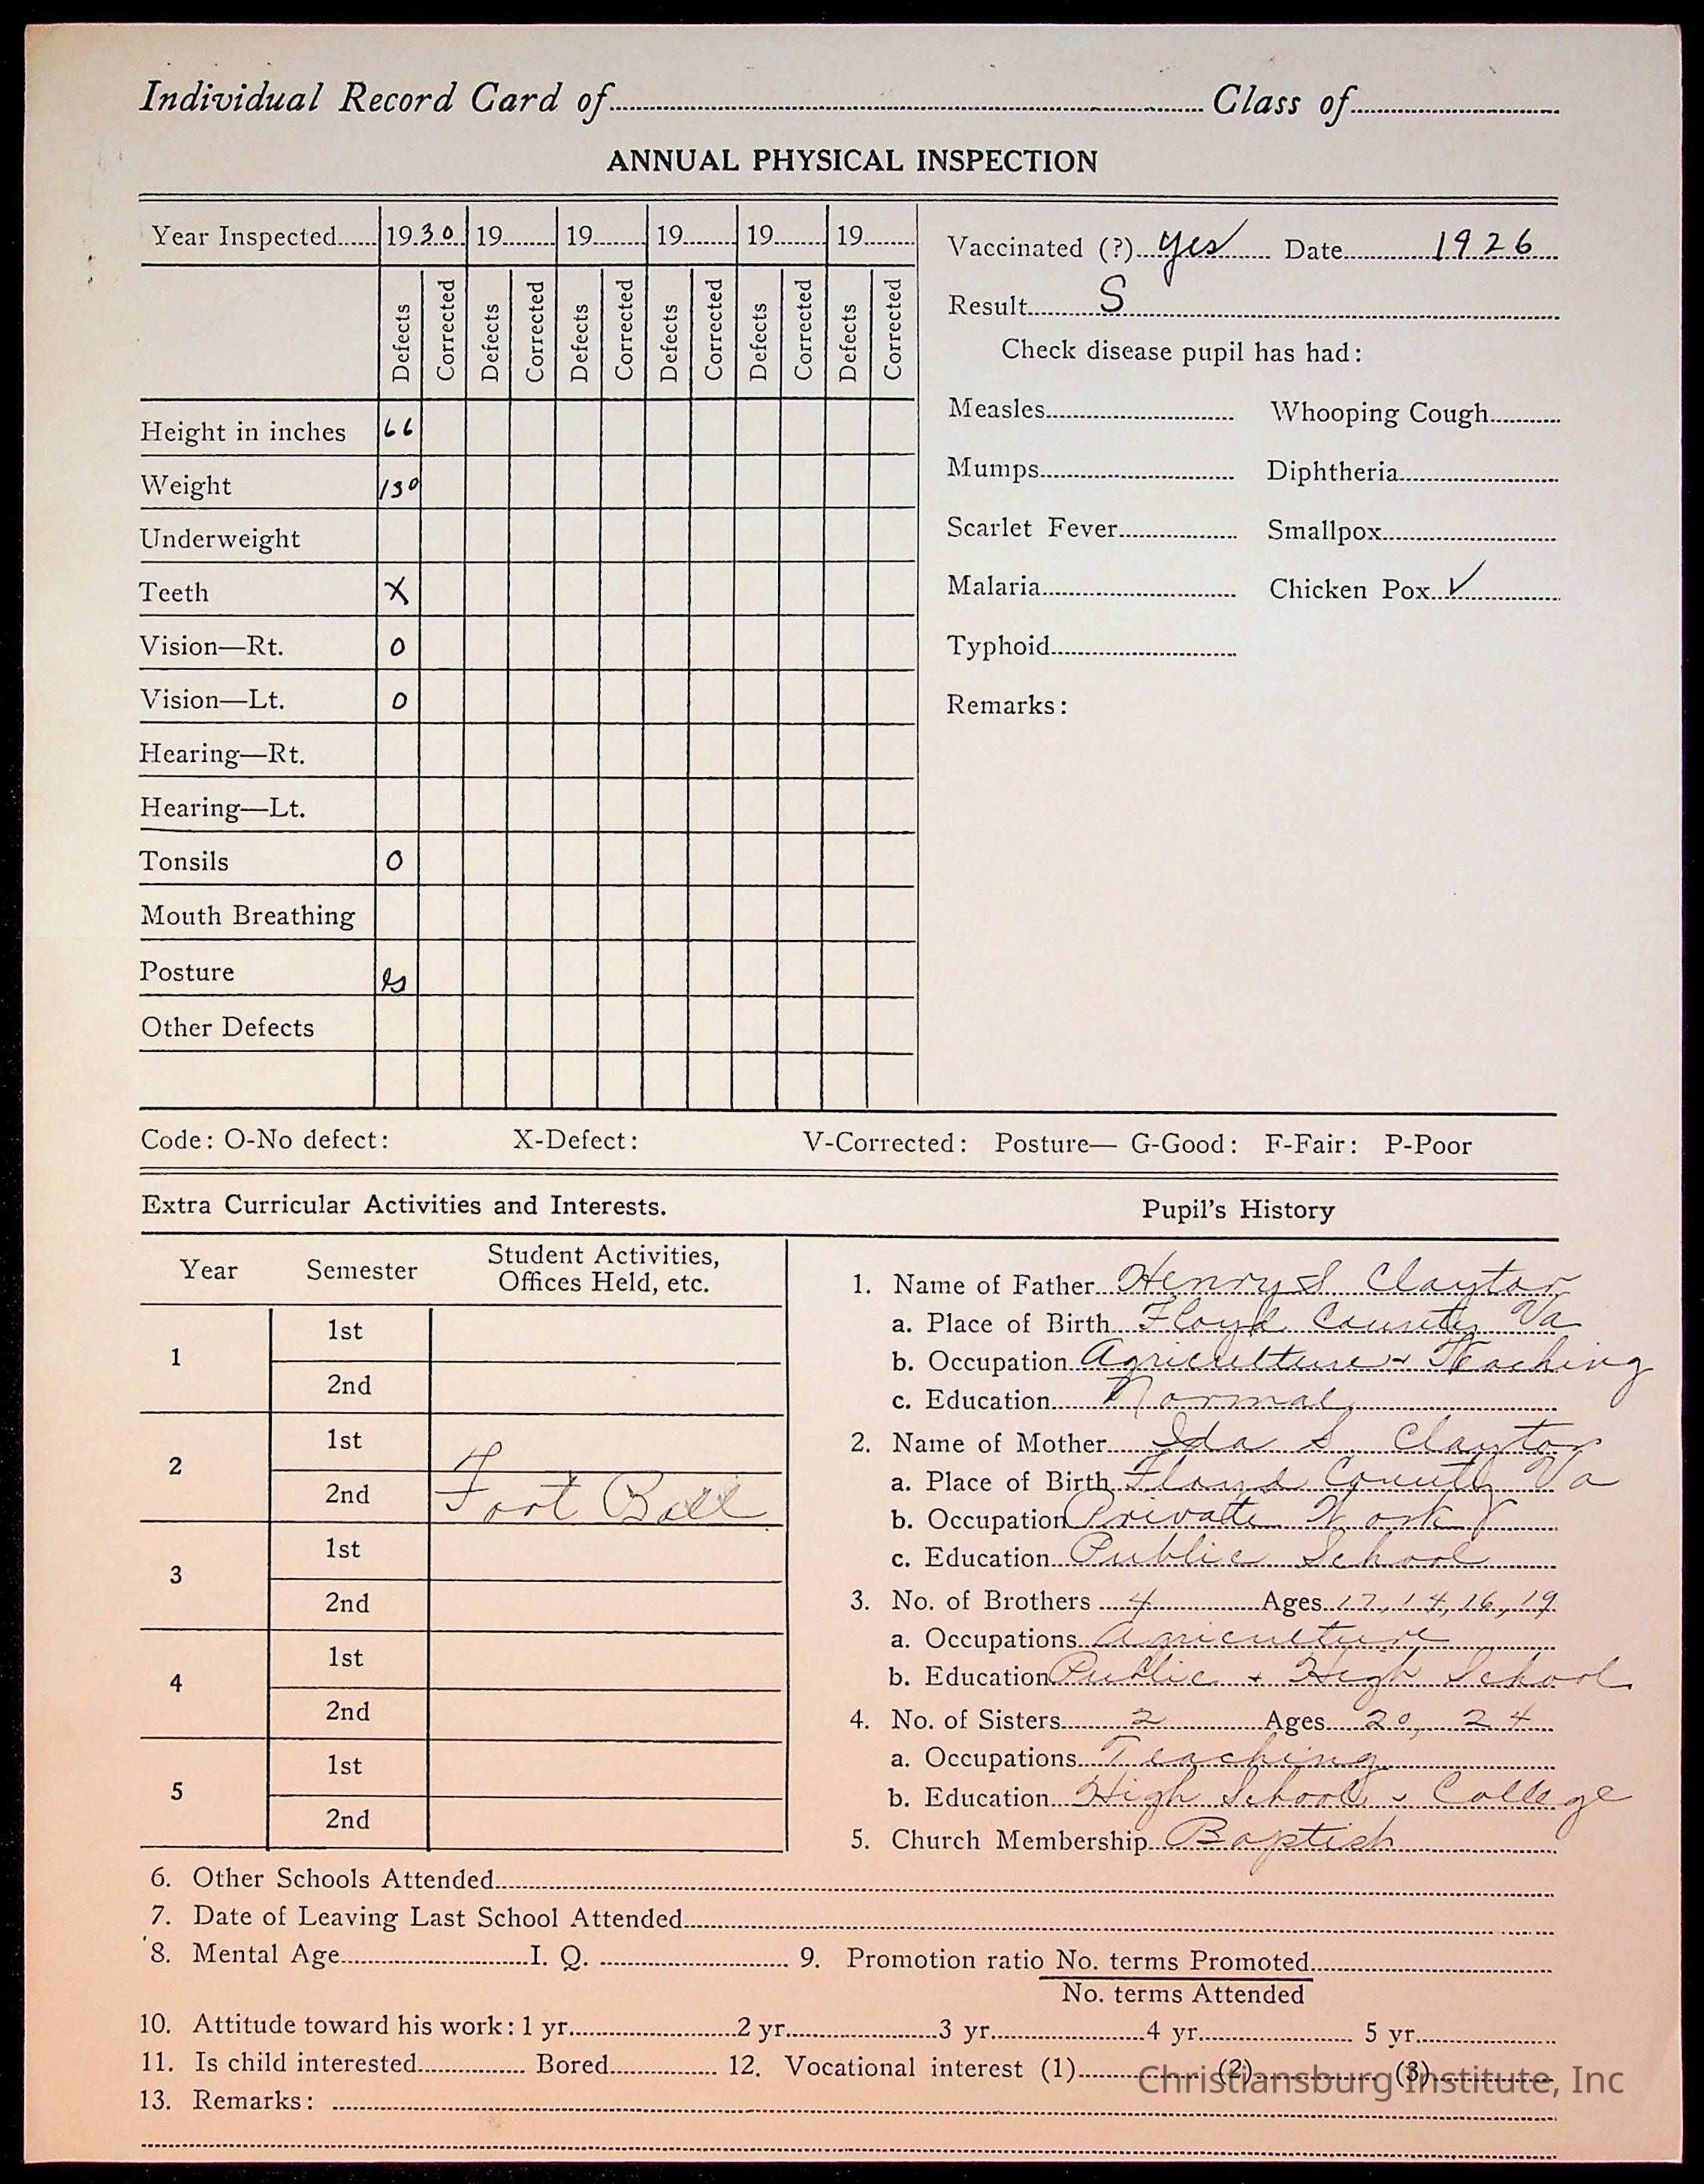 Individual Record Card of Class of
ANNUAL PHYSICAL INSPECTION
Year Inspected 1930 19 19 19 19 19
Defects Corrected Defects Corrected Defects Corrected Defects Corrected Defects Corrected Defects Corrected
Height in inches 66
Weight 130
Underweight
Teeth X
Vision—Rt. O
Vision—Lt. O
Hearing—Rt.
Hearing—Lt.
Tonsils O
Mouth Breathing
Posture
Other Defects
Vaccinated (?) yes Date 1926
Result S
Check disease pupil has had:
Measles Whooping Cough
Mumps Diphtheria
Scarlet Fever Smallpox
Malaria Chicken Pox ✓
Typhoid
Remarks:
Code: O-No defect: X-Defect: V-Corrected: Posture— G-Good: F-Fair: P-Poor
Extra Curricular Activities and Interests.
Year Semester Student Activities,
Offices Held, etc.
1 1st
2nd
2 1st
2nd Foot Ball
3 1st
2nd
4 1st
2nd
5 1st
2nd
Pupil's History
1. Name of Father Henry S Claytor
a. Place of Birth Floyd County Va
b. Occupation Agriculture + Teaching
c. Education Normal
2. Name of Mother Ida S. Claytor
a. Place of Birth Floyd County Va
b. Occupation Private Work
c. Education Public School
3. No. of Brothers 4 Ages 17, 14, 16, 19
a. Occupations Agriculture
b. Education Public + High School
4. No. of Sisters 2 Ages 20, 24
a. Occupations Teaching
b. Education High School College
5. Church Membership Baptish
6. Other Schools Attended
7. Date of Leaving Last School Attended
8. Mental Age I. Q. 9. Promotion ratio No. terms Promoted
No. terms Attended
10. Attitude toward his work: 1 yr. 2 yr. 3 yr. 4 yr. 5 yr.
11. Is child interested Bored 12. Vocational interest (1) (2) (3)
Christiansburg Institute, Inc
13. Remarks: